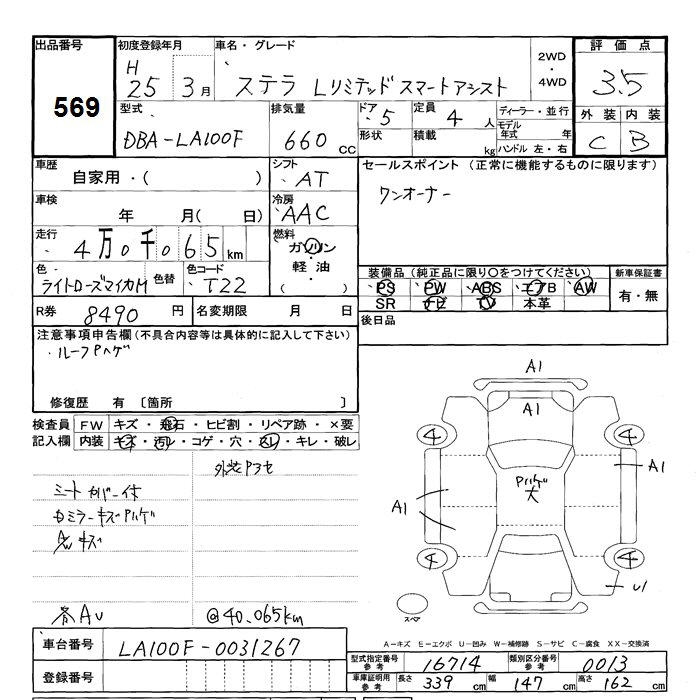 出品番号
569
初度登録年月
H
25 3月
車名・グレード
ステラ Lリミテッド スマートアシスト
2WD
・
4WD
評価点
3.5
型式
DBA-LA100F
排気量
660 cc
ドア
5
定員
4 人
ディーラー・並行
モデル
年式 年
形状
積載
kg
ハンドル 左・右
外装 内装
C B
車歴
自家用・( )
シフト
AT
セールスポイント (正常に機能するものに限ります)
ワンオーナー
車検
年 月( 日)
冷房
AAC
走行
4万0千065km
燃料
ガソリン
・
軽油
・
( )
色
ライトローズマイカM
色替
色コード
T22
装備品(純正品に限り○をつけてください)
新車保証書
PS PW ABS エアB AW
SR ナビ TV 本革
有・無
R券 8490 円
名変期限 月 日
後日品
注意事項申告欄(不具合内容等は具体的に記入して下さい)
・ルーフPハゲ
修復歴 有 〔箇所 〕
検査員
記入欄
FW キズ・飛石・ヒビ割・リペア跡・×要
内装 キズ・汚レ・コゲ・穴・スレ・キレ・破レ
外装Pヌセ
シートカバー付
ドミラーキズPハゲ
AWキズ
@40.065km
A1
A1
4 4
A1
Pハゲ
大
A1
4 4
U1
スペア
A-キズ E-エクボ U-凹み W-補修跡 S-サビ C-腐食 XX-交換済
車台番号 LA100F-0031267
登録番号
型式指定番号
参考
16714
類別区分番号
参考
0013
車庫証明用
参考
長さ 339 cm 幅 147 cm 高さ 162 cm